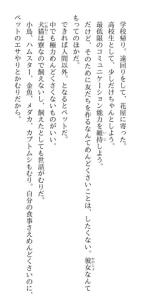 学校帰り、遠回りをして、花屋に寄った。
高校生として、少しだけちゃんとしよう。
最低限のコミュニケーション能力を維持しよう。
だけど、そのために友だちを作るなんてめんどくさいことは、したくない。彼女なんて
もってのほかだ。
できれば人間以外、となるとペットだ。
中でも極力めんどくさくないものがいい。
犬猫は寮なので飼えないし、飼えたとしても世話がだりだ。
小鳥、ハムスター、金魚、メダカ、カブトムシもむり。自分の食事さえめんどくさいのに、
ペットのエサやりとかもっとだ。